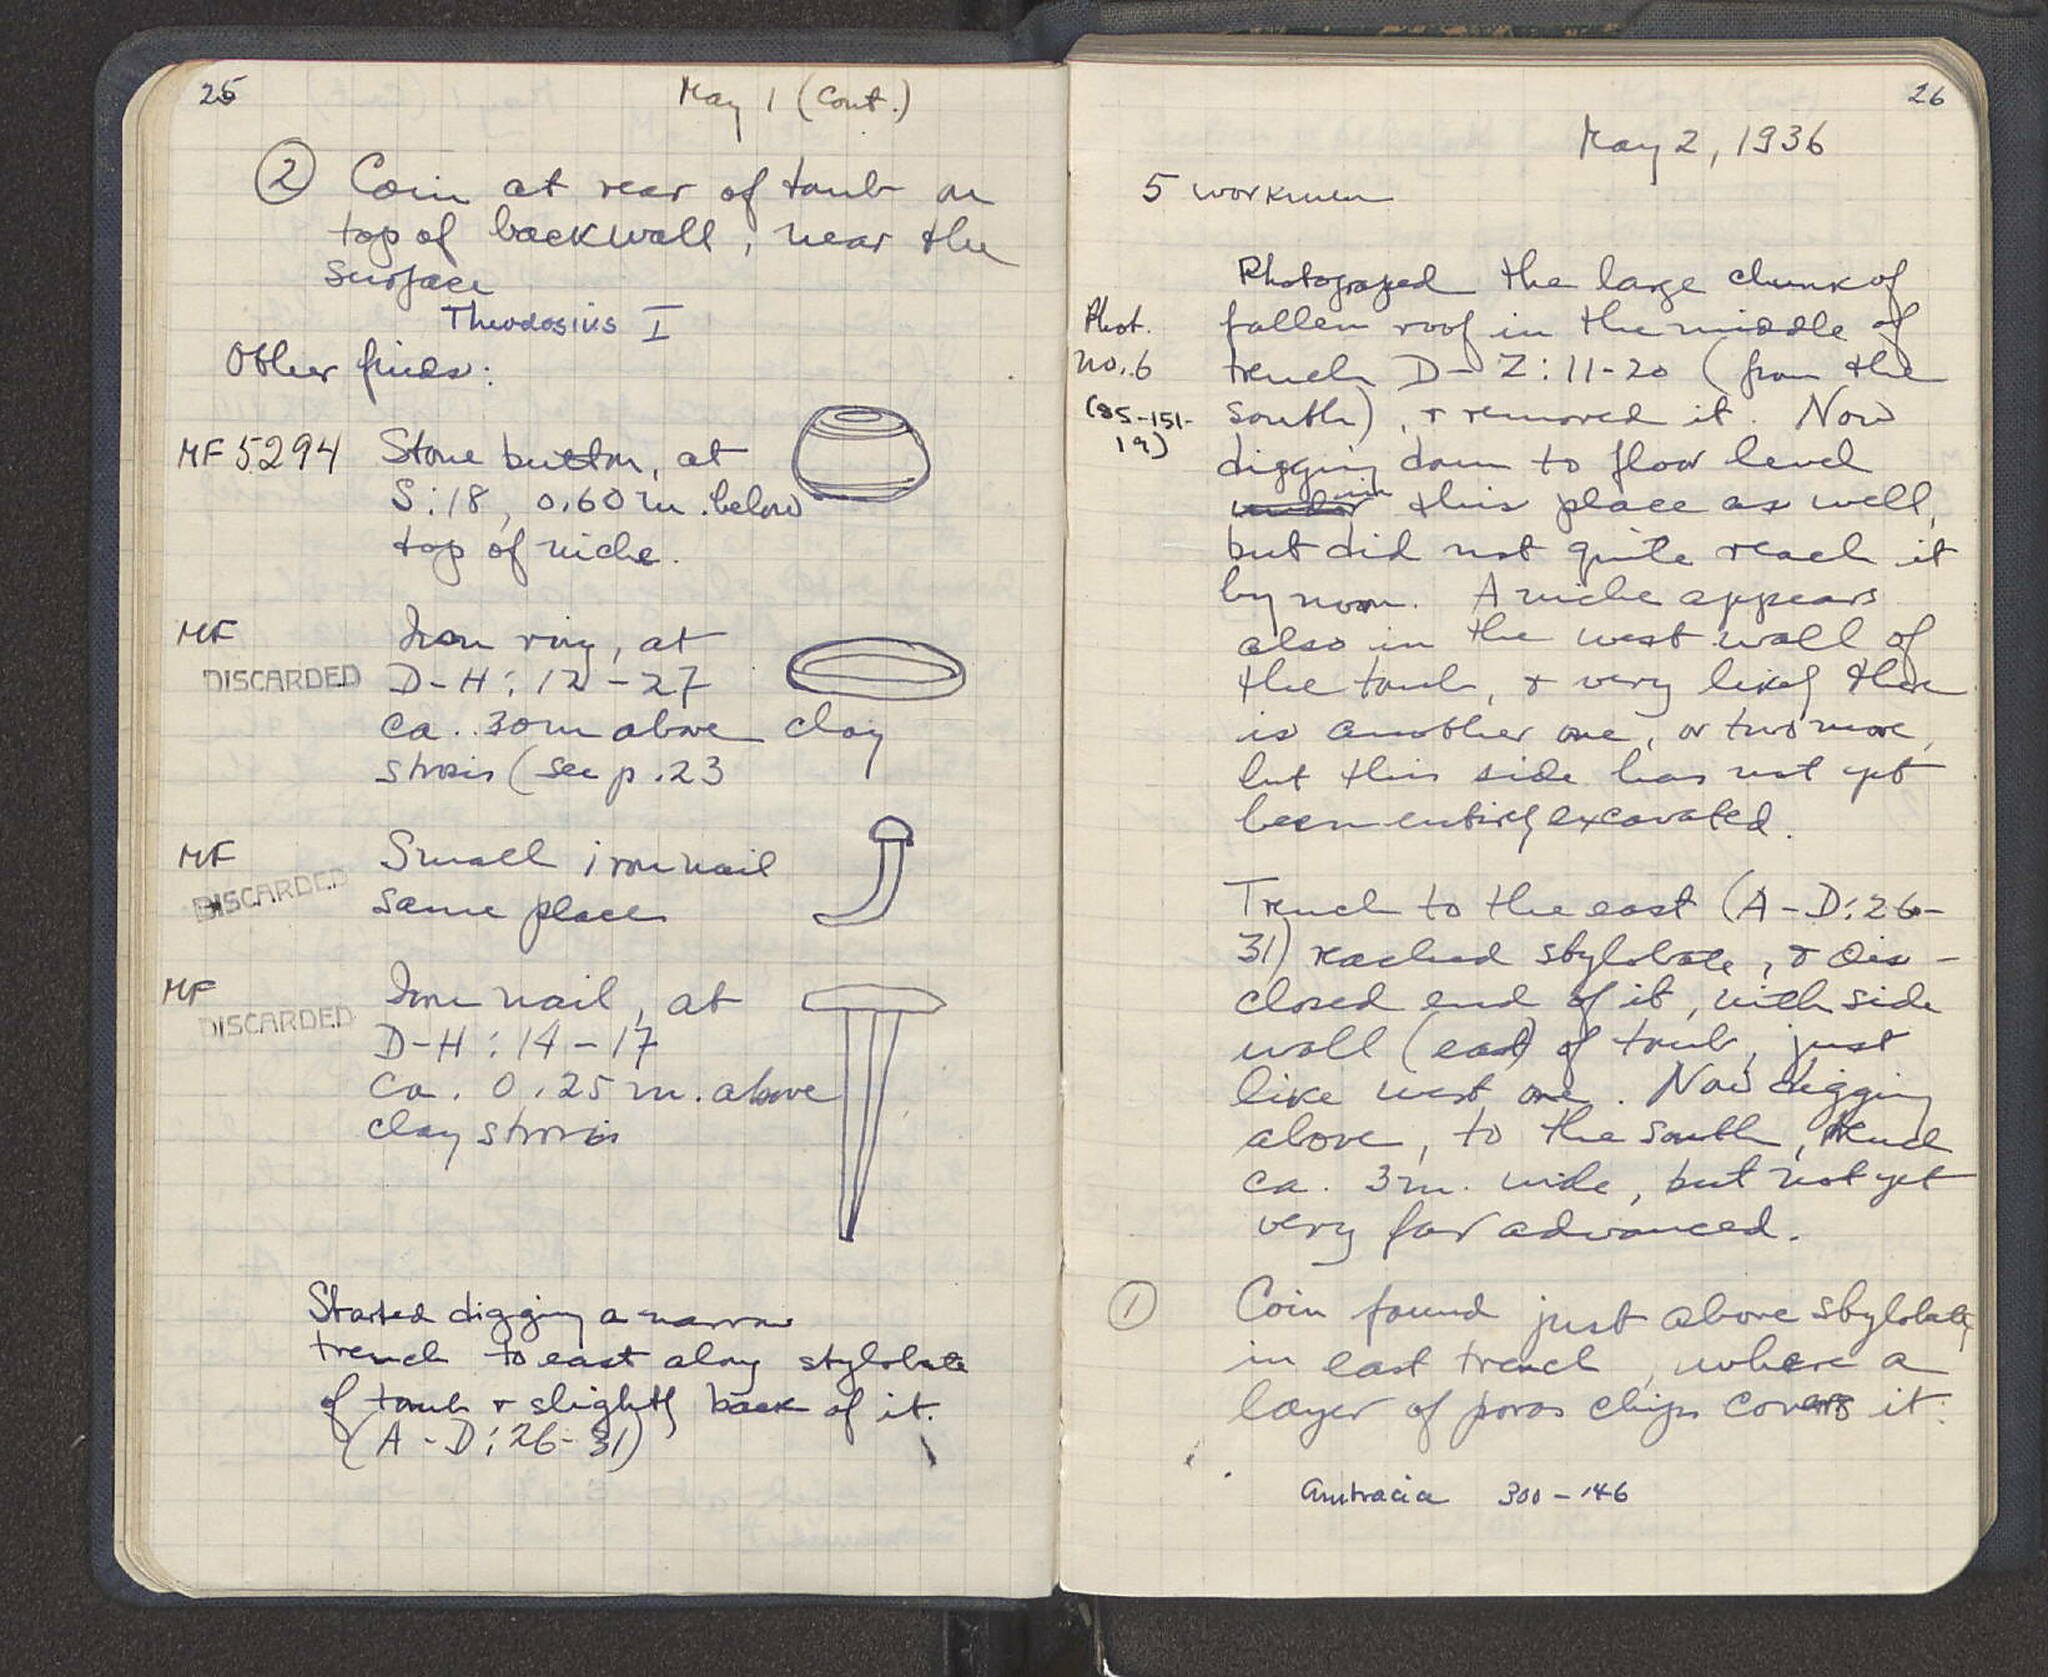 25
May 1 (Cont.)
② Coin at rear of tomb on
top of backwall, near the
surface
Theodosius I
Other finds:
MF 5294 Stone button, at
S:18, 0.60 m. below
top of niche.
MF Iron ring, at
DISCARDED D-H:12-27
ca. .30m above clay
strosis (see p.23
MF Small iron nail
DISCARDED same place
MF Iron nail, at
DISCARDED D-H:14-17
ca. 0.25 m. above
clay strosis
Started digging a narrow
trench to east along stylobate
of tomb + slightly back of it.
(A-D:26-31)
26
May 2, 1936
5 workmen
Photograped the large chunk of
Phot. fallen roof in the middle of
no. 6 trench D-Z:11-20 (from the
(85-151- south), + removed it. Now
19) digging down to floor level
under in this place as well,
but did not quite reach it
by noon. A niche appears
also in the west wall of
the tomb, + very likely there
is another one, or two more,
but this side has not yet
been entirely excavated.
Trench to the east (A-D:26-
31) reached stylobate, + dis-
closed end of it, with side
wall (east) of tomb, just
like west one. Now digging
above, to the south, trench
ca. 3m. wide, but not yet
very far advanced.
① Coin found just above stylobate,
in east trench, where a
layer of poros chips covers it.
Ambracia 300-146